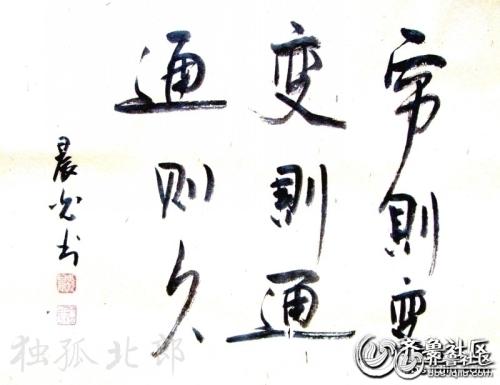 穷則变
变則通
通则久
晨光书
独孤北郎
齐鲁社区